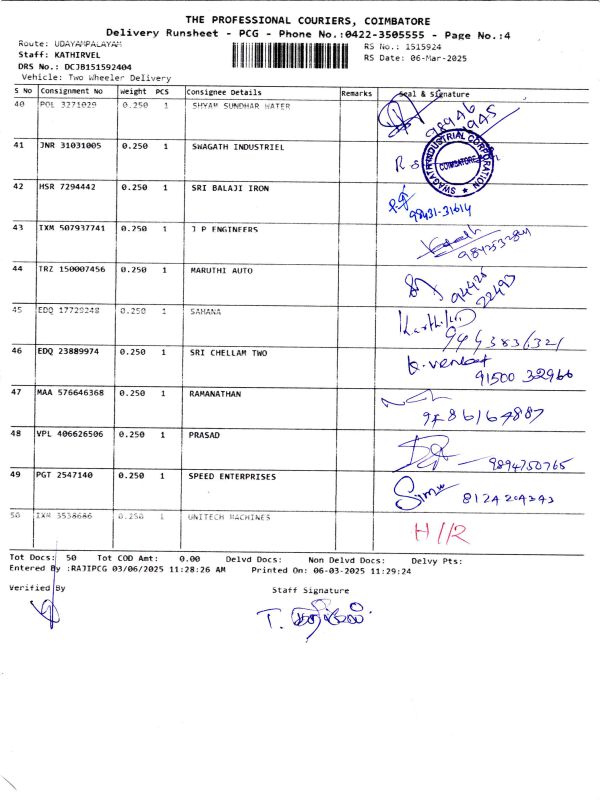 THE PROFESSIONAL COURIERS, COIMBATORE
Delivery Runsheet - PCG - Phone No.:0422-3505555 - Page No.:4
Route: UDAYAMPALAYAM
RS No.: 1515924
Staff: KATHIRVEL
RS Date: 06-Mar-2025
DRS No.: DCJB151592404
Vehicle: Two Wheeler Delivery
S No Consignment No Weight PCS Consignee Details Remarks Seal & Signature
40 POL 3271029 0.250 1 SHYAM SUNDHAR WATER 98946
41 JNR 31031005 0.250 1 SWAGATH INDUSTRIEL
SWAGATH INDUSTRIAL CORPORATION
COIMBATORE
42 HSR 7294442 0.250 1 SRI BALAJI IRON
98431-31614
43 IXM 507937741 0.250 1 J P ENGINEERS
44 TRZ 150007456 0.250 1 MARUTHI AUTO
94425
22493
45 EDQ 17729248 0.250 1 SAHANA
46 EDQ 23889974 0.250 1 SRI CHELLAM TWO K. venkat
91500 32966
47 MAA 576646368 0.250 1 RAMANATHAN
48 VPL 406626506 0.250 1 PRASAD
9894750765
49 PGT 2547140 0.250 1 SPEED ENTERPRISES
8124204343
50 IXM 3538686 0.250 1 UNITECH MACHINES
Tot Docs: 50 Tot COD Amt: 0.00 Delvd Docs: Non Delvd Docs: Delvy Pts:
Entered By :RAJIPCG 03/06/2025 11:28:26 AM Printed On: 06-03-2025 11:29:24
Verified By Staff Signature